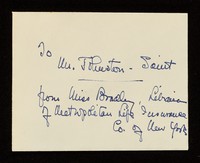 To
Mr. Johnston - Saint
from Miss Bradley, Librarian
of Metropolitan Life Insurance
Co. of New York